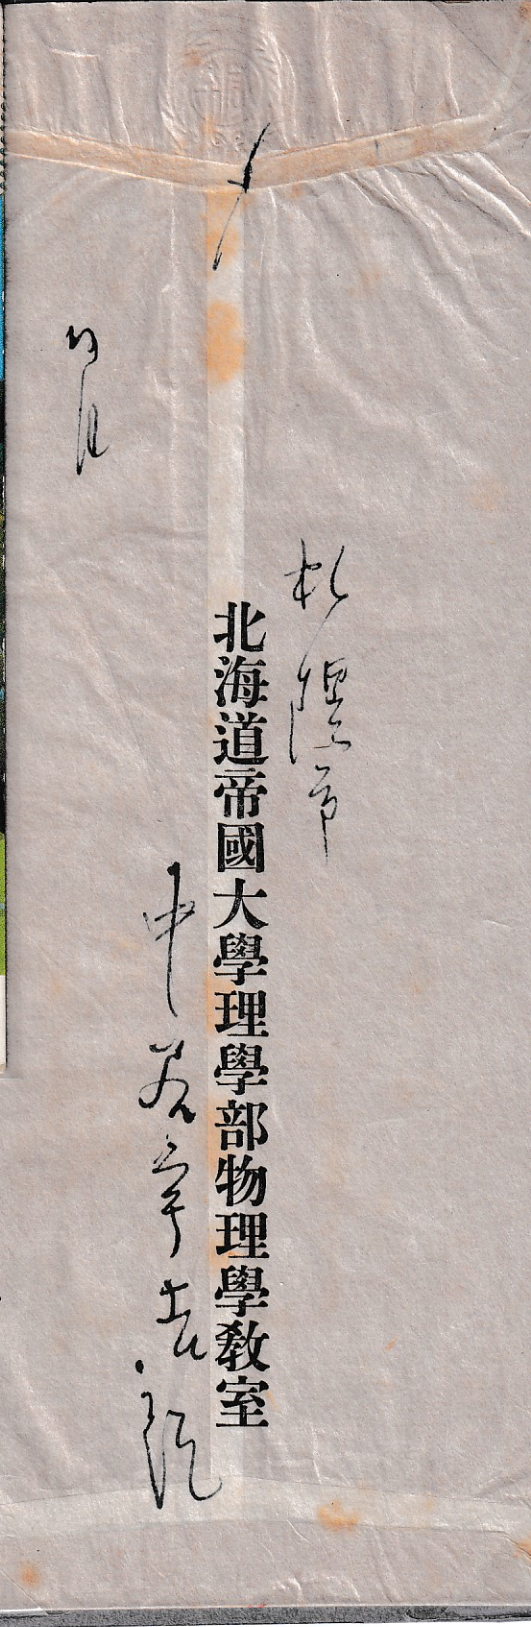 札幌市
北海道帝國大學理學部物理學教室
中谷宇吉郎